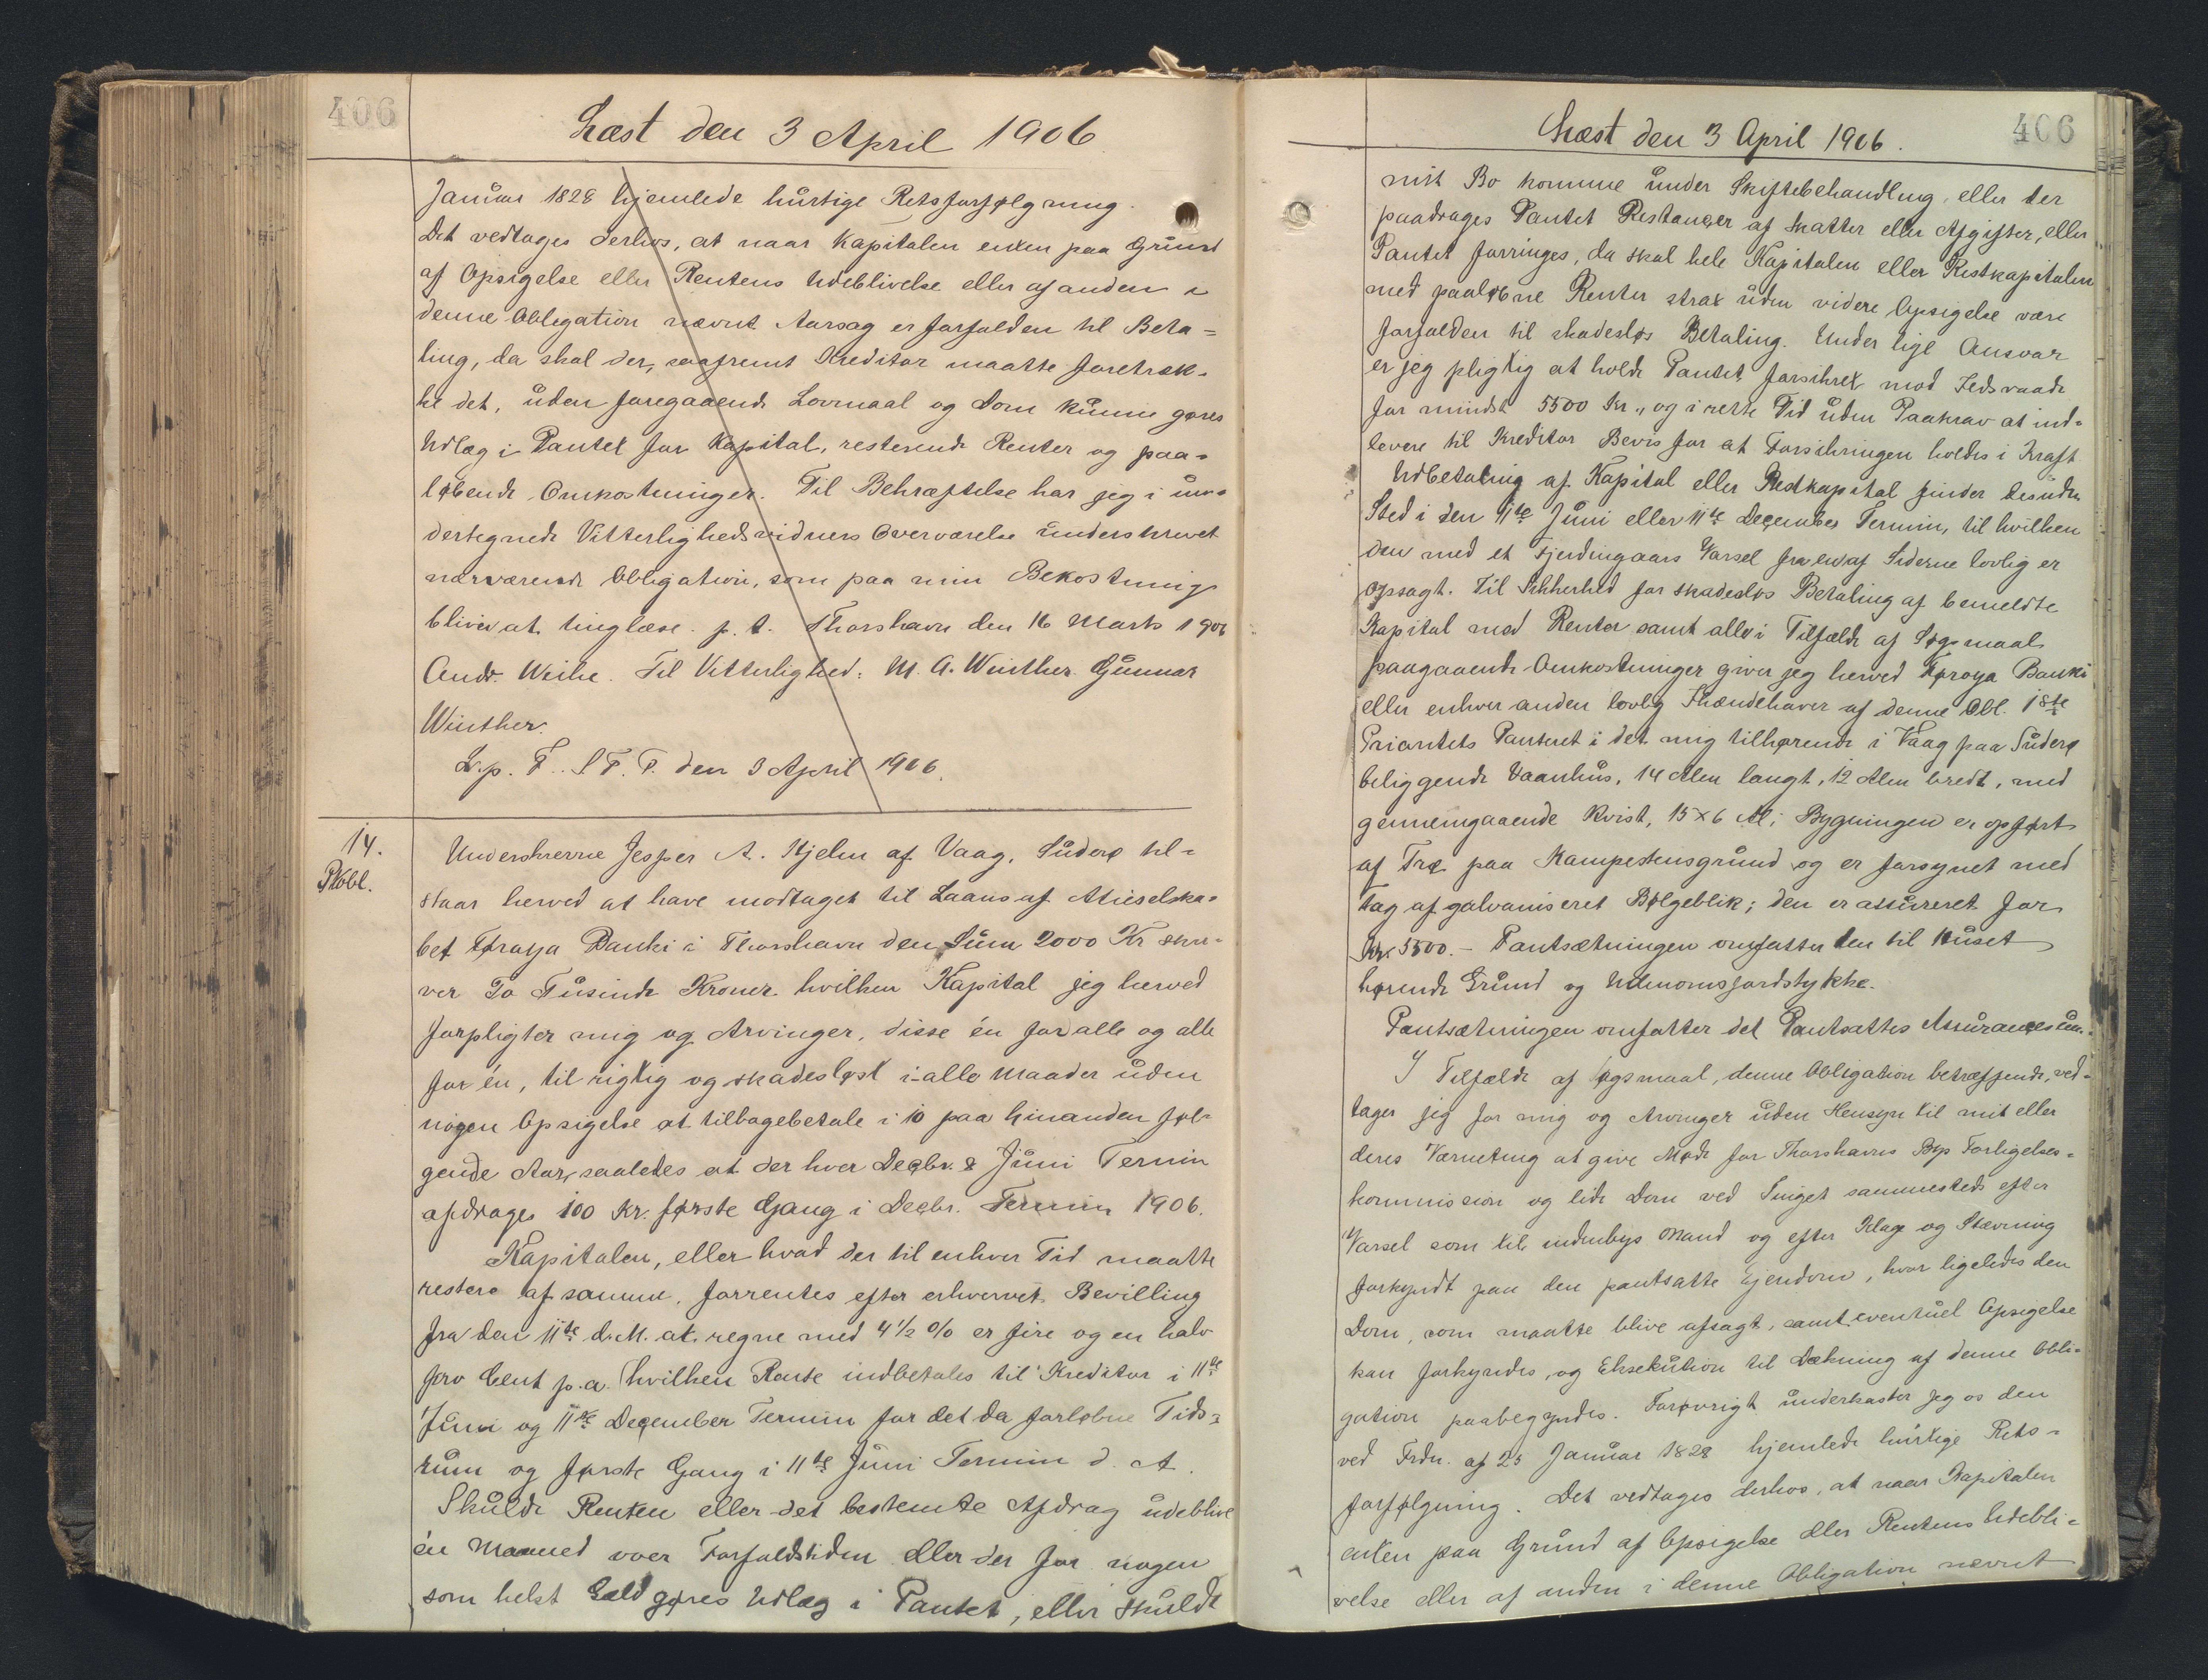 406
Læst den 3 April 1906
Januar 1828 hjemlede hurtige Retsforfølgning.
Det vedtages derhos, at naar Kapitalen enten paa Grund
af Opsigelse eller Rentens Udeblivelse eller af anden i
denne Obligation nævnt Aarsag er forfalden til Beta=
ling, da skal der, saafremt Kreditor maatte foretræk-
ke det, uden foregaaende Lovmaal og Dom kunne gøres
Udlæg i Pantet for Kapital, resterende Renter og paa-
løbende Omkostninger. Til Bekræftelse har jeg i un-
dertegnede Vitterlighedsvidners Overværelse underskrevet
nærværende Obligation, som paa min Bekostning
bliver at tinglæse. p. t. Thorshavn den 16 Marts 1906
Andr. Weihe. Til Vitterlighed: M. A. Winther. Gunnar
Winther.
L. p. F. S. F. T. den 3 April 1906.
14.
PObl.
Underskrevne Jesper A. Kjelm af Vaag, Suderø til-
staar herved at have modtaget til Laans af Atieselska-
bet Føroya Banki i Thorshavn den Sum 2000 Kr skri-
ver To Tusinde Kroner hvilken Kapital jeg herved
forpligter mig og Arvinger, disse én for alle og alle
for én, til rigtig og skadesløst i alle Maader uden
nogen Opsigelse at tilbagebetale i 10 paa hinanden føl-
gende Aar, saaledes at der hver Decbr. & Juni Termin
afdrages 100 Kr. første Gang i Decbr. Termin 1906.
Kapitalen, eller hvad der til enhver Tid maatte
restere af samme, forrentes efter erhvervet Bevilling
fra den 11te d. M. at regne med 4½ % er fire og en halv
pro Cent p. a. hvilken Rente indbetales til Kreditor i 11te
Juni og 11te December Termin for det da forløbne Tids-
rum og første Gang i 11te Juni Termin d. A.
Skulde Renten eller det bestemte Afdrag udeblive
én Maaned over Forfaldstiden eller der for nogen
som helst Gæld gøres Udlæg i Pantet, eller skulde
Læst den 3 April 1906.
406
mit Bo komme under Skiftebehandling, eller der
paadrages Pantet Restancer af Skatter eller Afgifter, eller
Pantet forringes, da skal hele Kapitalen eller Restkapitalen
med paaløbne Renter strax uden videre Opsigelse være
forfalden til skadesløs Betaling. Under lige Ansvar
er jeg pligtig at holde Pantet forsikret mod Ildsvaade
for mindst 5500 Kr., og i rette Tid uden Paakrav at ind-
levere til Kreditor Bevis for at Forsikringen holdes i Kraft
Udbetaling af Kapital eller Restkapital finder desuden
Sted i den 11te Juni eller 11te December Termin, til hvilken
den med et Fjerdingaars Varsel fra en af Siderne lovlig er
opsagt. Til Sikkerhed for skadesløs Betaling af bemeldte
Kapital med Renter samt alle i Tilfælde af Søgsmaal
paagaaende Omkostninger giver jeg herved Føroya Banki
eller enhver anden lovlig Ihændehaver af denne Obl. 1ste
Prioritets Panteret i det mig tilhørende i Vaag paa Suderø
beliggende Vaanhus, 14 Alen langt, 12 Alen bredt, med
gennemgaaende Kvist, 15×6 Al; Bygningen er opført
af Træ paa Kampestensgrund og er forsynet med
Tag af galvaniseret Bølgeblik; den er assureret for
Kr. 5500.- Pantsætningen omfatter den til Huset
hørende Grund og Udenomsjordstykke.
Pantsætningen omfatter det Pantsattes Assurancesum.
I Tilfælde af Søgsmaal, denne Obligation betræffende, ved-
tager jeg for mig og Arvinger uden Hensyn til mit eller
deres Værneting at give Møde for Thorshavns Bys Forligelses-
kommission og lide Dom ved Tinget sammesteds efter
Varsel som til indenbys Mand og efter Klage og Stævning
forkyndt paa den pantsatte Ejendom, hvor ligeledes den
Dom, som maatte blive afsagt, samt eventuel Opsigelse
kan forkyndes, og Eksekution til Dækning af denne Obli-
gation paabegyndes. Forøvrigt underkaster jeg os den
ved Frdn. af 25 Januar 1828 hjemlede hurtige Rets-
forfølgning. Det vedtages derhos, at naar Kapitalen
enten paa Grund af Opsigelse eller Rentens Udebli-
velse eller af anden i denne Obligation nævnt